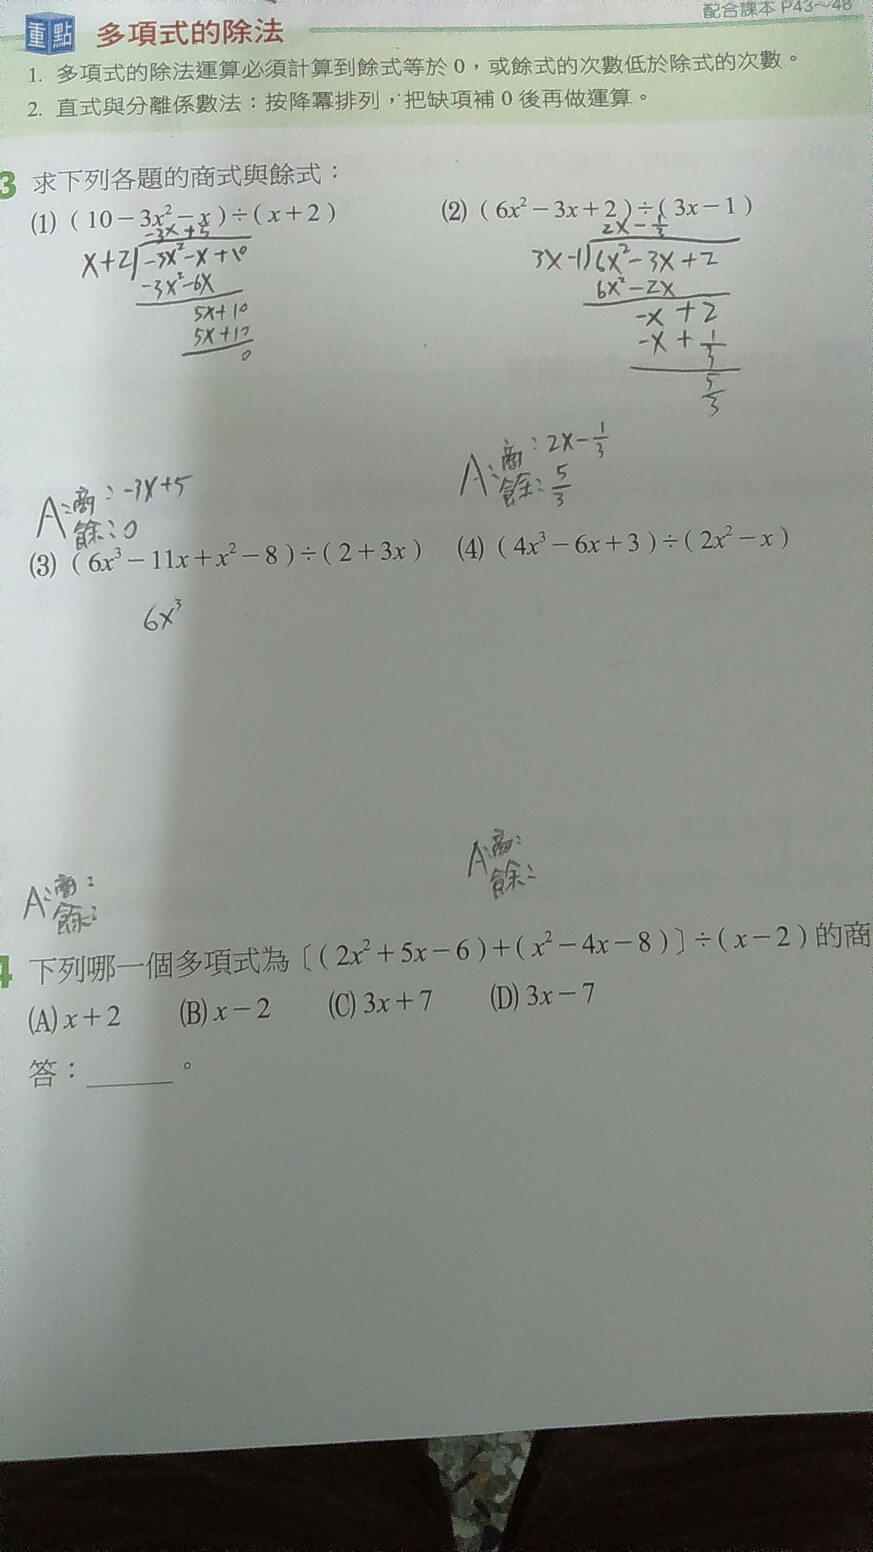 配合課本 P43～46
重點 多項式的除法
1. 多項式的除法運算必須計算到餘式等於 0，或餘式的次數低於除式的次數。
2. 直式與分離係數法：按降冪排列，把缺項補 0 後再做運算。
3 求下列各題的商式與餘式：
(1) ( 10－3x²－x )÷( x＋2 )
-3x+5
x+2)-3x²-x+10
-3x²-6x
5x+10
5x+10
0
A:商:-3x+5
餘:0
(2) ( 6x²－3x＋2 )÷( 3x－1 )
2x-1/3
3x-1)6x²-3x+2
6x²-2x
-x+2
-x+1/3
5/3
A:商:2x-1/3
餘:5/3
(3) ( 6x³－11x＋x²－8 )÷( 2＋3x )
6x³
A:商:
餘:
(4) ( 4x³－6x＋3 )÷( 2x²－x )
A商:
餘:
4 下列哪一個多項式為〔( 2x²＋5x－6 )＋( x²－4x－8 )〕÷( x－2 )的商
(A) x＋2 (B) x－2 (C) 3x＋7 (D) 3x－7
答：______。